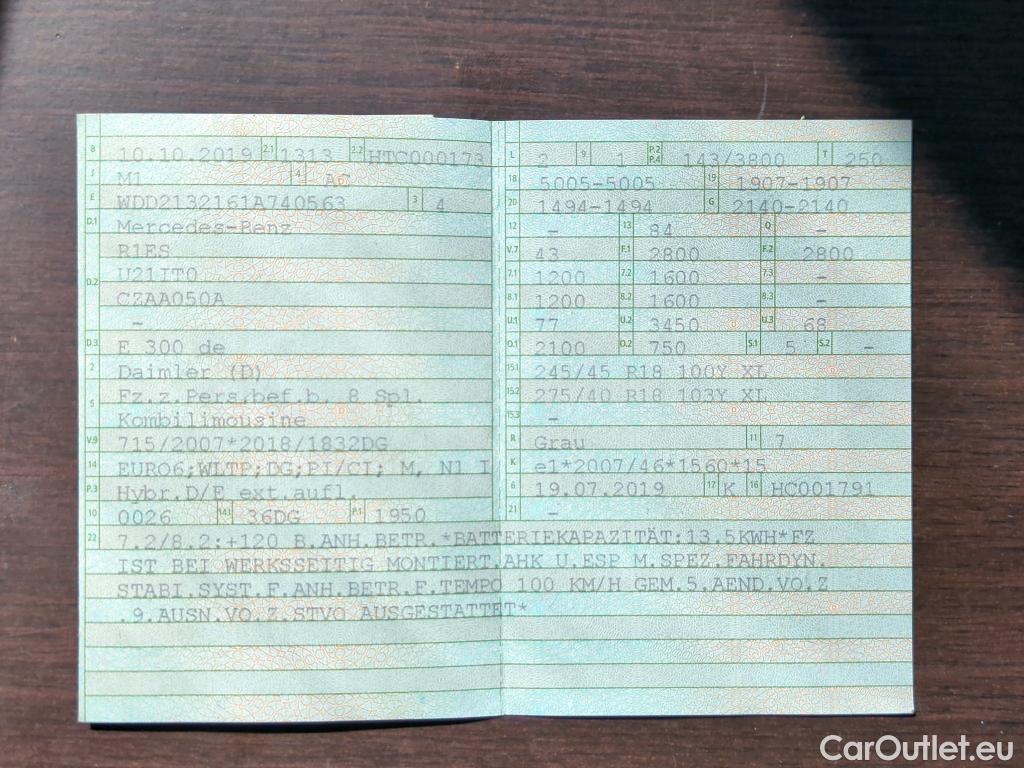 B 10.10.2019 2.1 1313 2.2 HTC000173
J M1 4 AC
E WDD2132161A740563 3 4
D.1 Mercedes-Benz
R1ES
D.2 U21IT0
CZAA050A
-
D.3 E 300 de
2 Daimler (D)
5 Fz.z.Pers.bef.b. 8 Spl.
Kombilimousine
V.9 715/2007*2018/1832DG
14 EURO6;WLTP;DG;PI/CI; M, N1 I
P.3 Hybr.D/E ext.aufl.
10 0026 14.1 36DG P.1 1950
L 2 9 1 P.2 P.4 143/3800 T 250
18 5005-5005 19 1907-1907
20 1494-1494 G 2140-2140
12 - 13 84 Q -
V.7 43 F.1 2800 F.2 2800
7.1 1200 7.2 1600 7.3 -
8.1 1200 8.2 1600 8.3 -
U.1 77 U.2 3450 U.3 68
O.1 2100 O.2 750 S.1 5 S.2 -
15.1 245/45 R18 100Y XL
15.2 275/40 R18 103Y XL
15.3 -
R Grau 11 7
K e1*2007/46*1560*15
6 19.07.2019 17 K 16 HC001791
21 -
22 7.2/8.2:+120 B.ANH.BETR.*BATTERIEKAPAZITÄT:13.5KWH*FZ
IST BEI WERKSSEITIG MONTIERT.AHK U.ESP M.SPEZ.FAHRDYN.
STABI.SYST.F.ANH.BETR.F.TEMPO 100 KM/H GEM.5.AEND.VO.Z
.9.AUSN.VO.Z.STVO AUSGESTATTET*
CarOutlet.eu